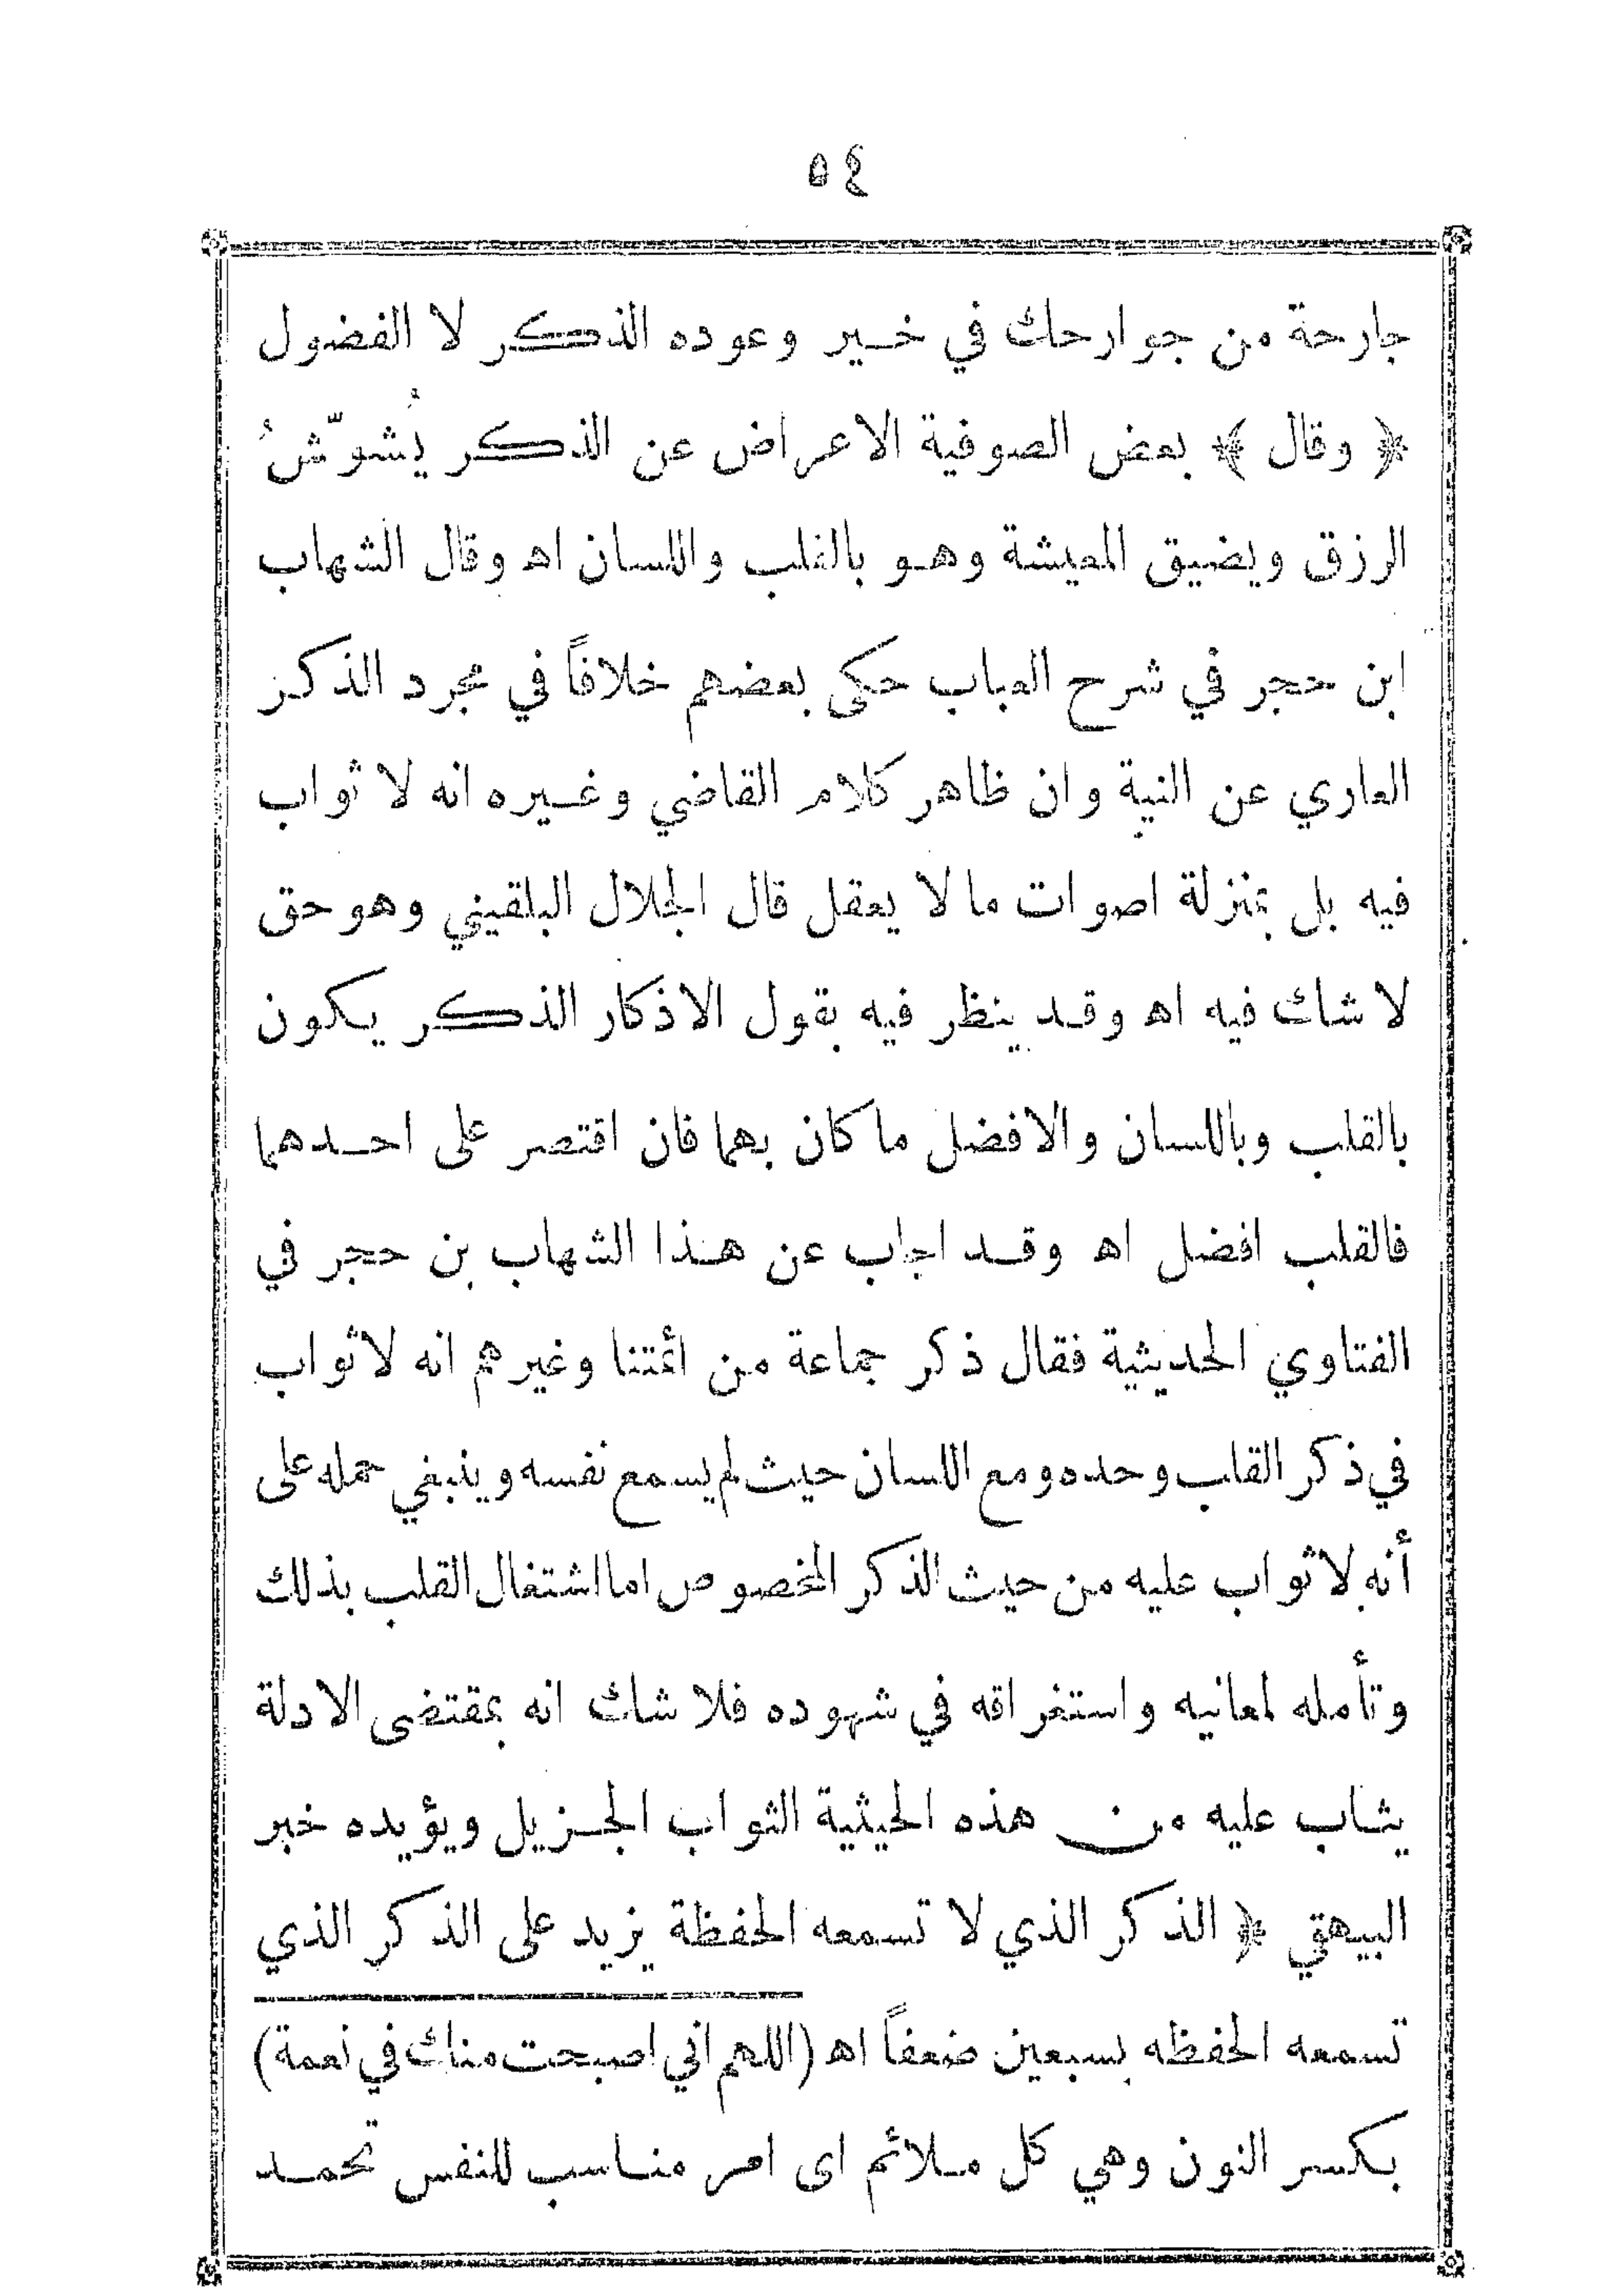 ٥٤
جارحة من جوارحك في خير وعوده الذكر لا الفضول
﴿ وقال ﴾ بعض الصوفية الاعراض عن الذكر يُشوّشُ
الرزق ويضيق المعيشة وهو بالقلب واللسان اه وقال الشهاب
ابن حجر في شرح العباب حكى بعضهم خلافاً في مجرد الذكر
العاري عن النية وان ظاهر كلام القاضي وغيره انه لا ثواب
فيه بل بمنزلة اصوات ما لا يعقل قال الجلال البلقيني وهو حق
لا شك فيه اه وقد ينظر فيه بقول الاذكار الذكر يكون
بالقلب وباللسان والافضل ما كان بهما فان اقتصر على احدهما
فالقلب افضل اه وقد اجاب عن هذا الشهاب بن حجر في
الفتاوي الحديثية فقال ذكر جماعة من أئمتنا وغيرهم انه لا ثواب
في ذكر القلب وحده ومع اللسان حيث لم يسمع نفسه وينبغي حمله على
أنه لا ثواب عليه من حيث الذكر المخصوص اما اشتغال القلب بذلك
وتأمله لمعانيه واستغراقه في شهوده فلا شك انه بمقتضى الادلة
يثاب عليه من هذه الحيثية الثواب الجزيل ويؤيده خبر
البيهقي ﴿ الذكر الذي لا تسمعه الحفظة يزيد على الذكر الذي
تسمعه الحفظه بسبعين ضعفاً اه (اللهم اني اصبحت منك في نعمة)
بكسر النون وهي كل ملائم اى امر مناسب للنفس تحمد